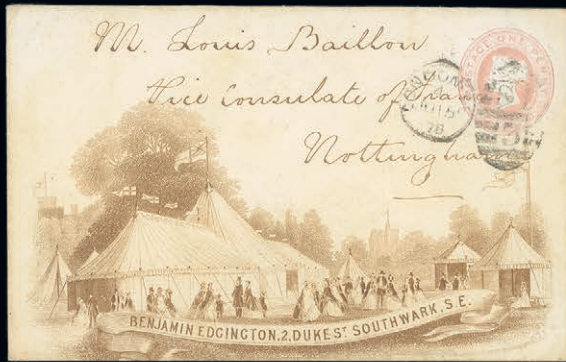 M. Louis Baillon
Vice Consulate of
Nottingham
POSTAGE ONE PENNY
LONDON
78
BENJAMIN EDGINGTON, 2, DUKE ST SOUTHWARK, S.E.